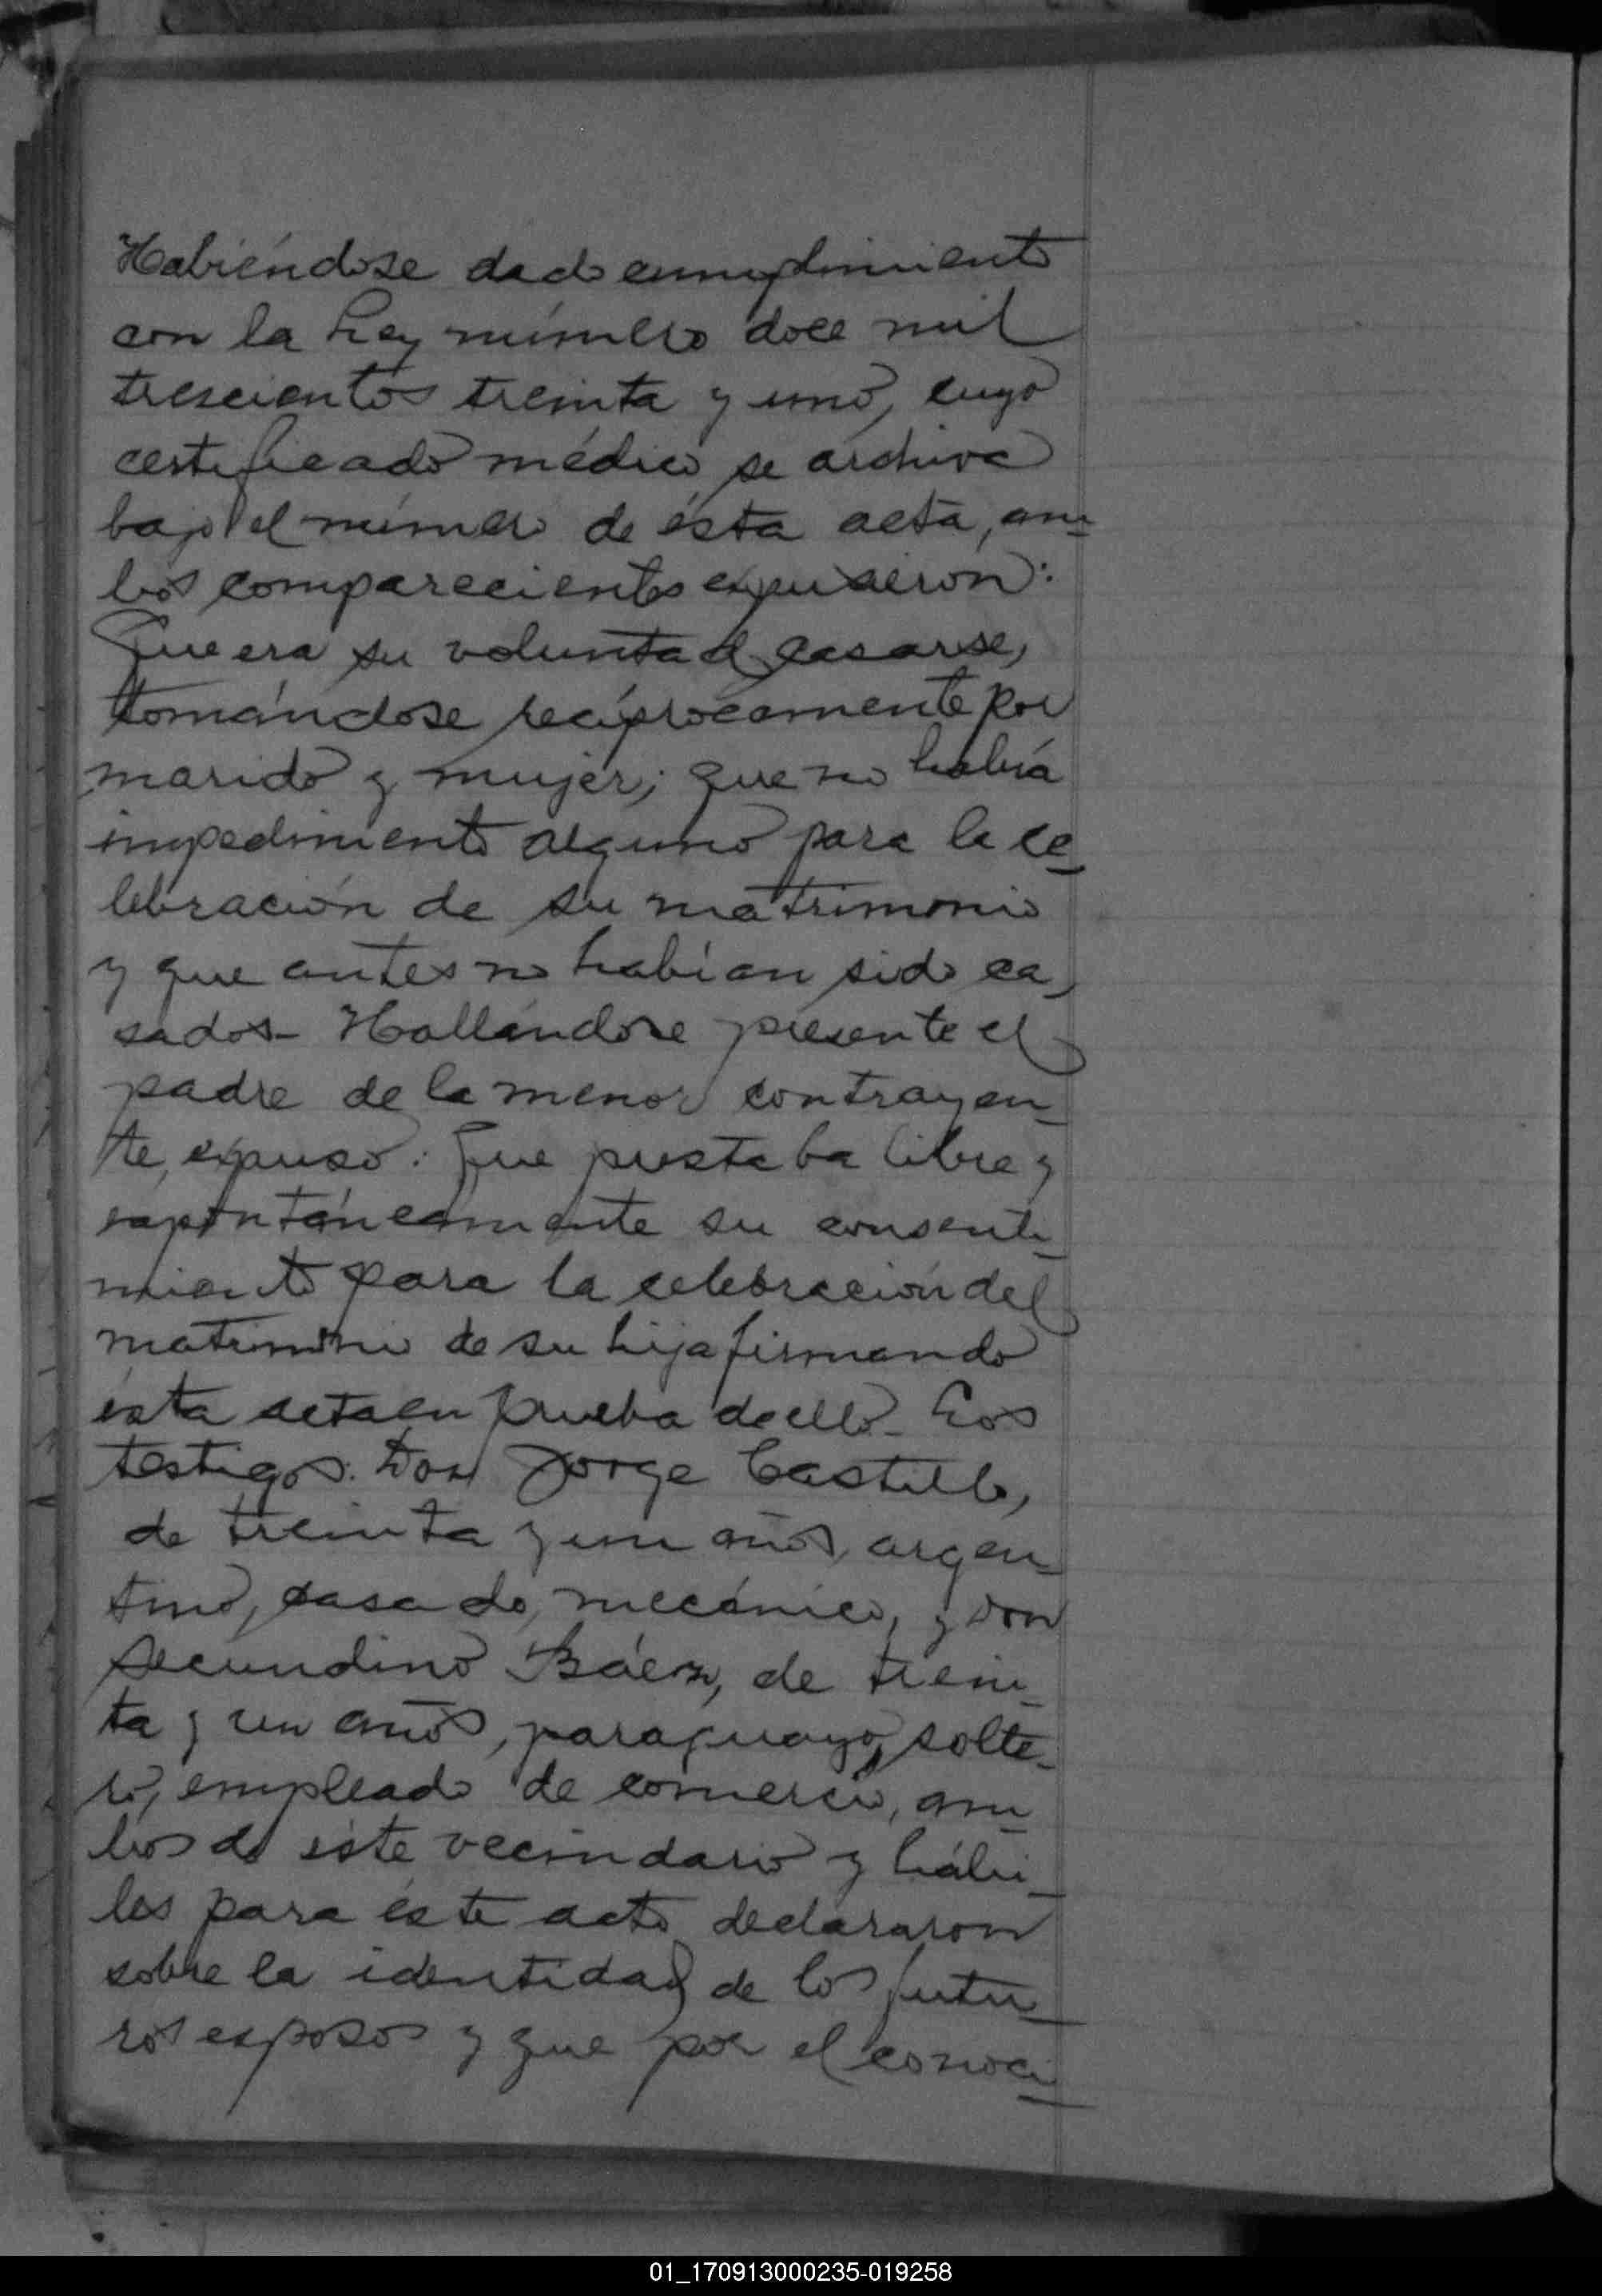 Habiéndose dado cumplimiento
con la Ley número doce mil
trescientos treinta y uno, cuyo
certificado médico se archiva
bajo el número de ésta acta, am-
bos comparecientes expusieron:
Que era su voluntad casarse,
tomándose recíprocamente por
marido y mujer; que no había
impedimento alguno para la ce-
lebración de su matrimonio
y que antes no habían sido ca-
sados- Hallándose presente el
padre de la menor contrayen-
te, expuso: Que prestaba libre y
espontáneamente su consenti-
miento para la celebración del
matrimonio de su hija firmando
ésta acta en prueba de ello- Los
testigos: Don Jorge Castillo,
de treinta y un años, argen-
tino, casado, mecánico, y Don
Secundino Báez, de trein-
ta y un años, paraguayo, solte-
ro, empleado de comercio, am-
bos de éste vecindario y hábi-
les para éste acto declararon
sobre la identidad de los futu-
ros esposos y que por el conoci-
01_170913000235-019258